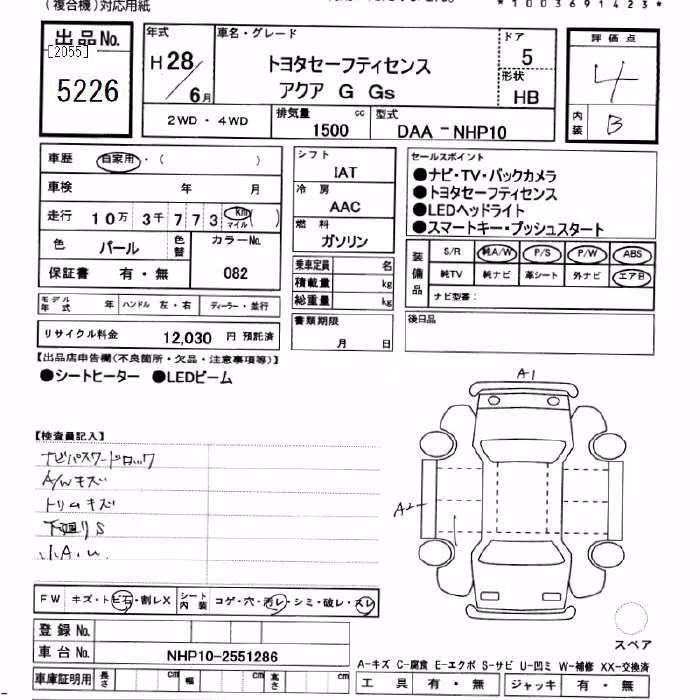 (複合機)対応用紙
*1003691423*
出品No.
[2055]
5226
年式
H28/6月
車名・グレード
トヨタセーフティセンス
アクア G Gs
ドア
5
形状
HB
評価点
4
内装 B
2WD・4WD
排気量 1500 cc
型式 DAA-NHP10
車歴 自家用・( )
車検 年 月
走行 10万 3千 7 7 3 km マイル ( )
色 パール 色替 カラーNo.
保証書 有・無 082
モデル年式 年 ハンドル 左・右 ディーラー・並行
リサイクル料金 12,030 円 預託済
シフト
IAT
冷房
AAC
燃料
ガソリン
乗車定員 名
積載量 kg
総重量 kg
書類期限
月 日
セールスポイント
●ナビ・TV・バックカメラ
●トヨタセーフティセンス
●LEDヘッドライト
●スマートキー・プッシュスタート
装備品 S/R 純A/W P/S P/W ABS
純TV 純ナビ 革シート 外ナビ エアB
ナビ型番:
後日品
【出品店申告欄(不良箇所・欠品・注意事項等)】
●シートヒーター ●LEDビーム
A1
A2
【検査員記入】
ナビパスワードロック
A/Wキズ
トリムキズ
下回りS
小A.U.
FW キズ・トビ石・割レX シート内装 コゲ・穴・汚レ・シミ・破レ・スレ
登録No.
車台No. NHP10-2551286
車庫証明用 長さ cm 幅 cm 高さ cm
スペア
A-キズ C-腐食 E-エクボ S-サビ U-凹ミ W-補修 XX-交換済
工具 有・無 ジャッキ 有・無